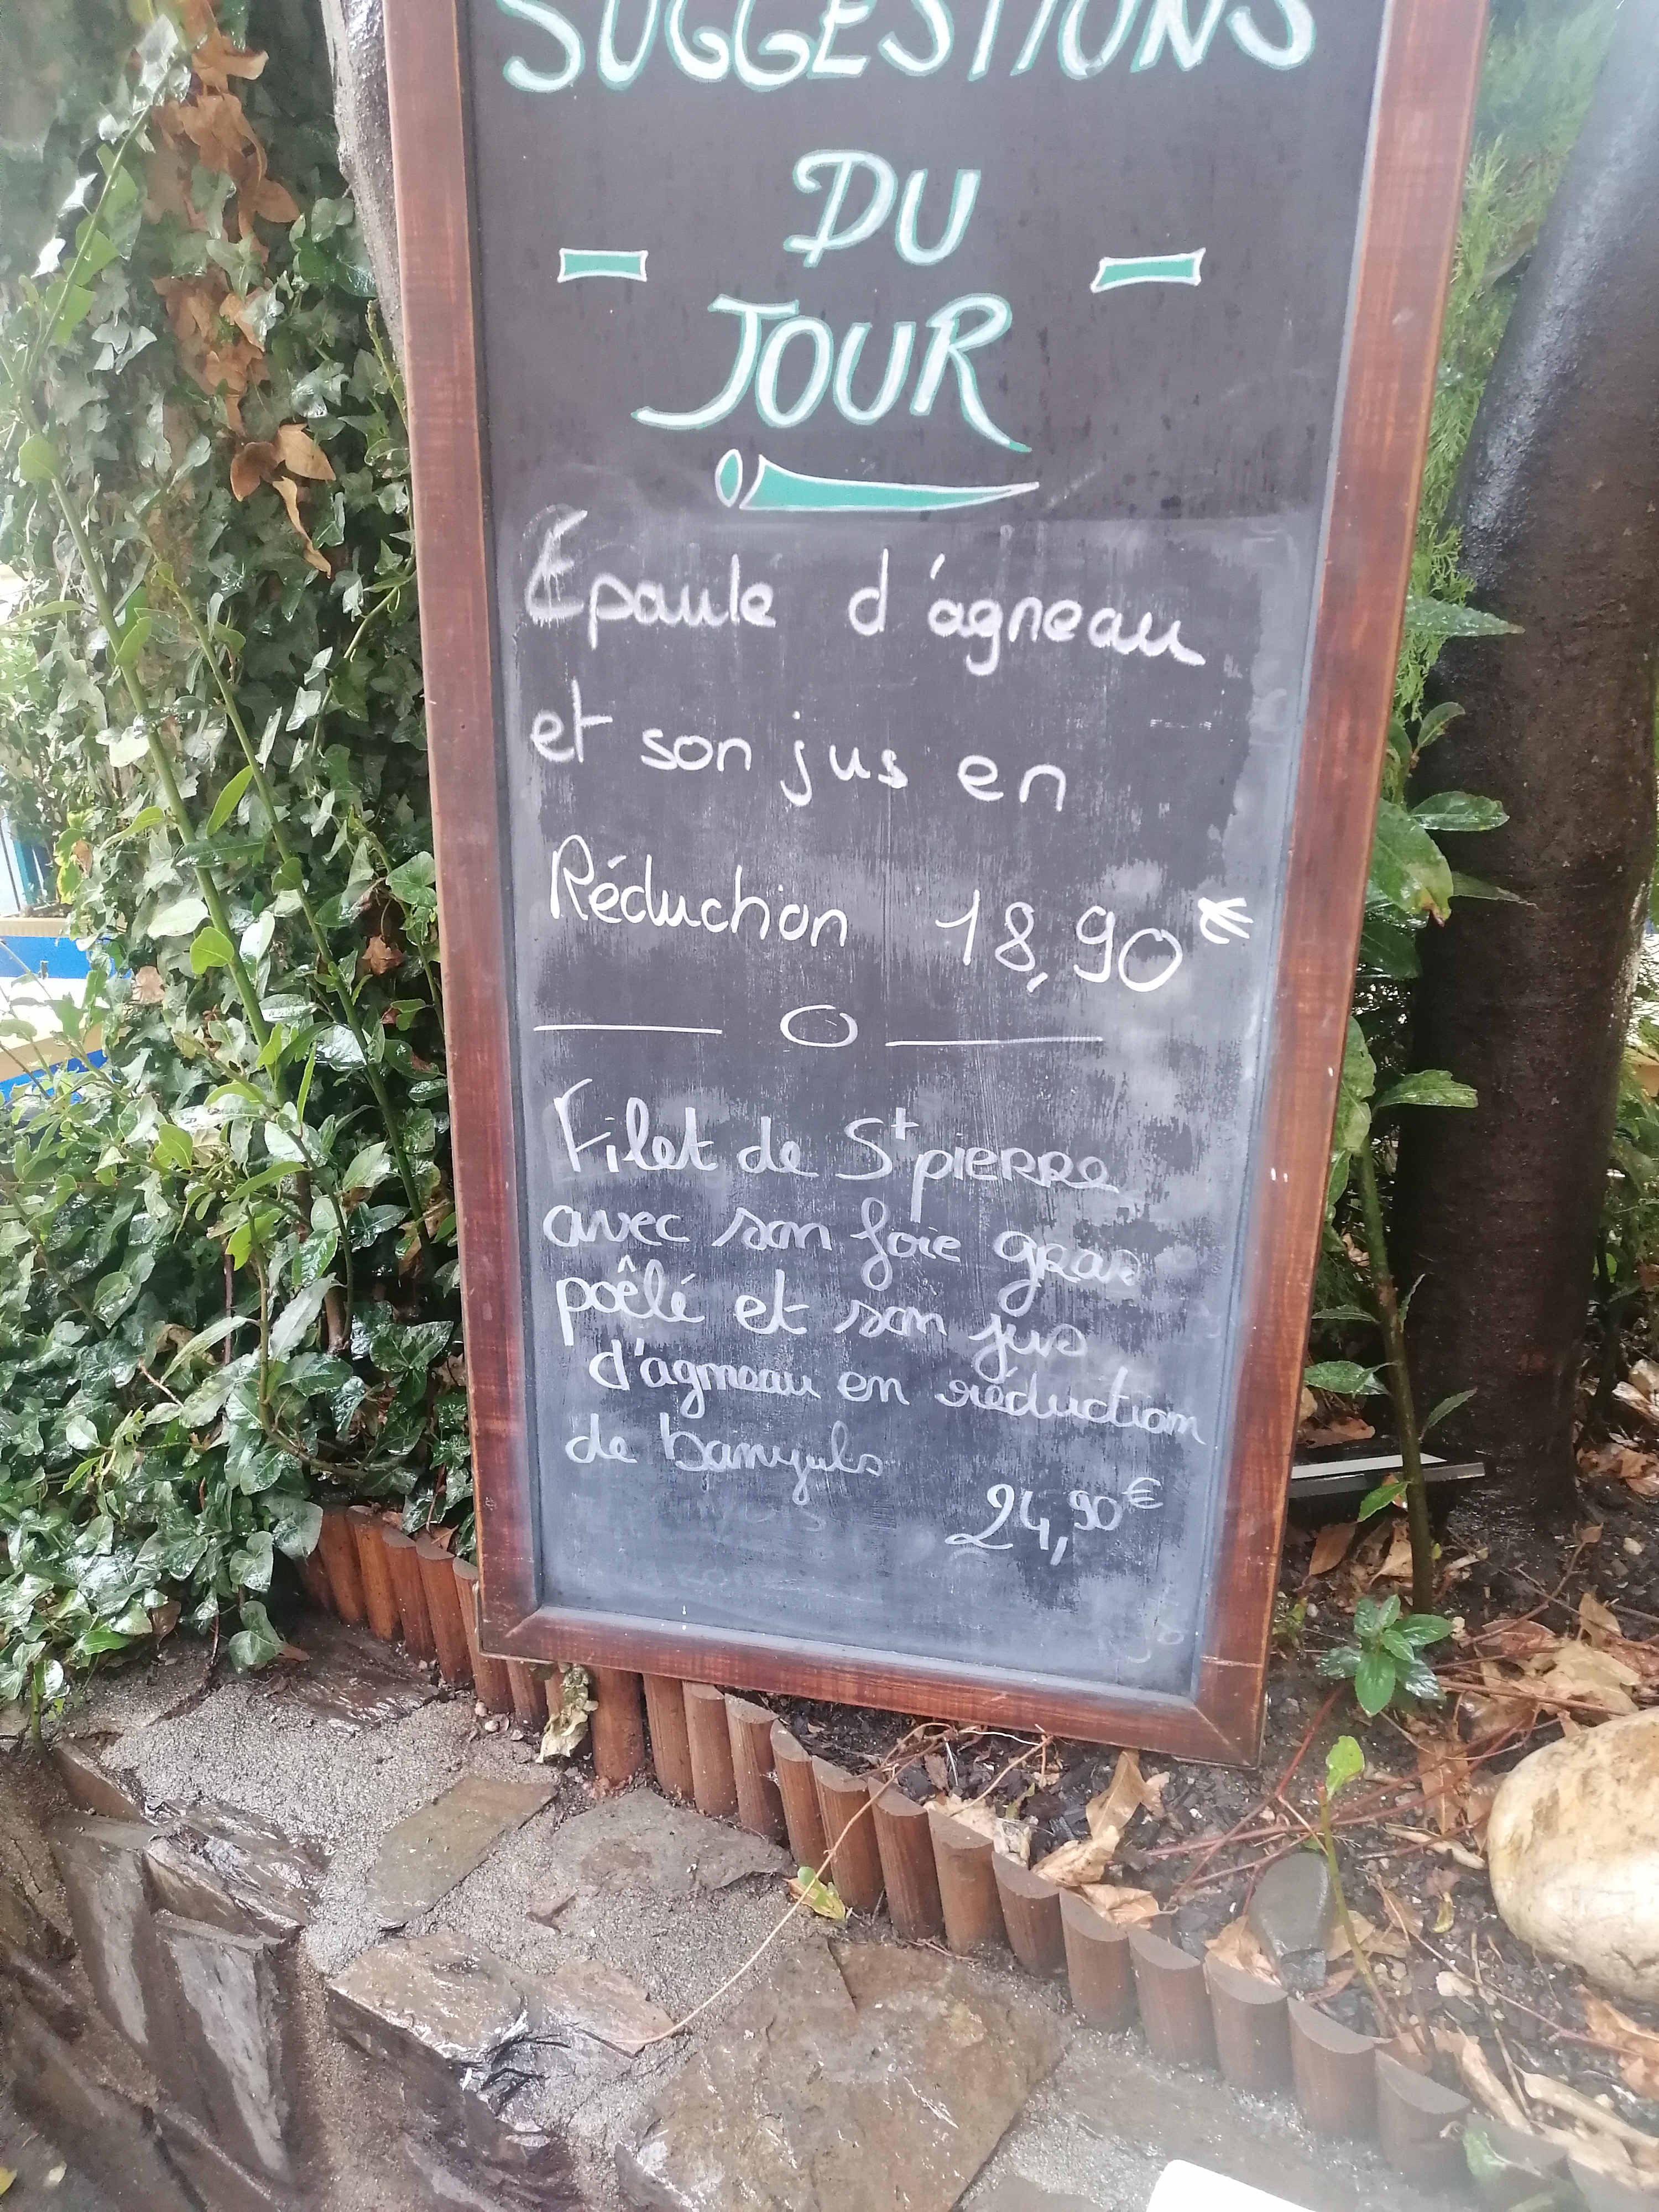 SUGGESTIONS
DU
JOUR
Epaule d'agneau
et son jus en
Réduction 18,90€
Filet de St pierre
avec son foie gras
poêlé et son jus
d'agneau en réduction
de banyuls
24,90€